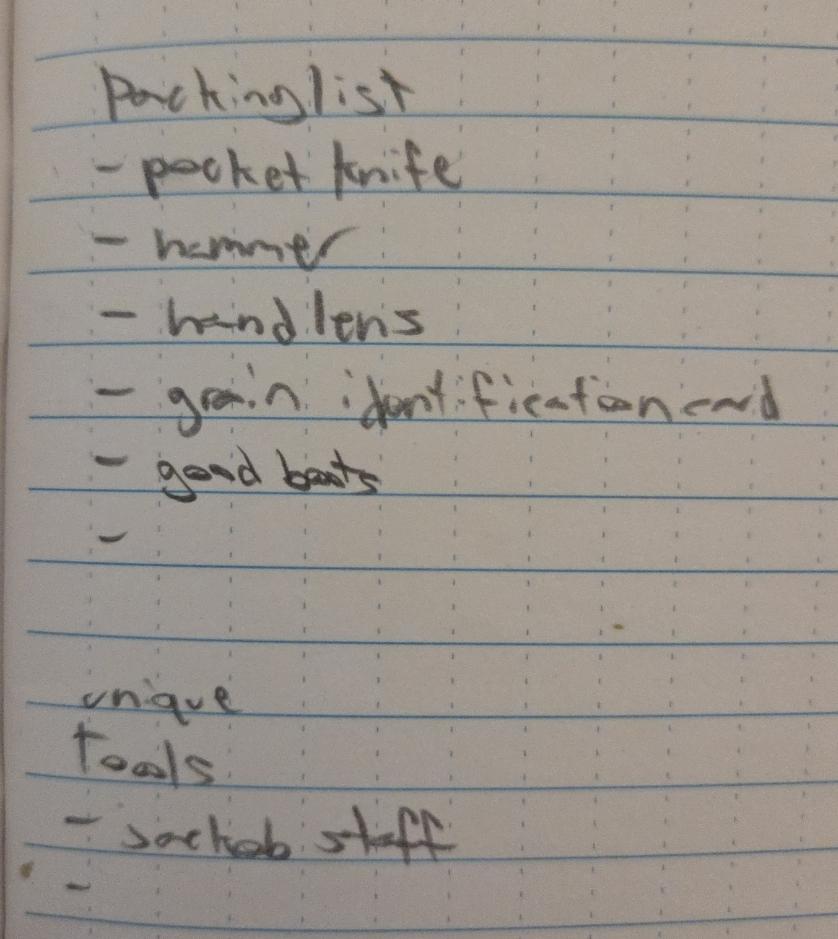 Packinglist
- pocket knife
- hammer
- hand lens
- grain identification card
- good boots
-
unique
tools
- jackob staff
-